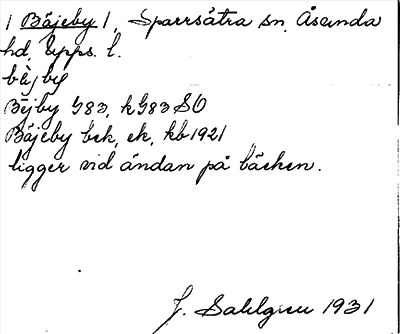 / Bäjeby /, Sparrsätra sn, Åsunda
hd, Upps. l.
bèjby
Bejby G83, kG83 SO
Bäjeby bek, ek, kb 1921
ligger vid ändan på bäcken.
J. Sahlgren 1931